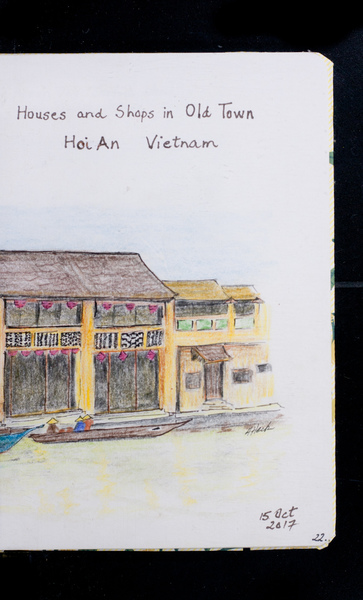 Houses and Shops in Old Town
Hoi An Vietnam
15 Oct
2017
22.